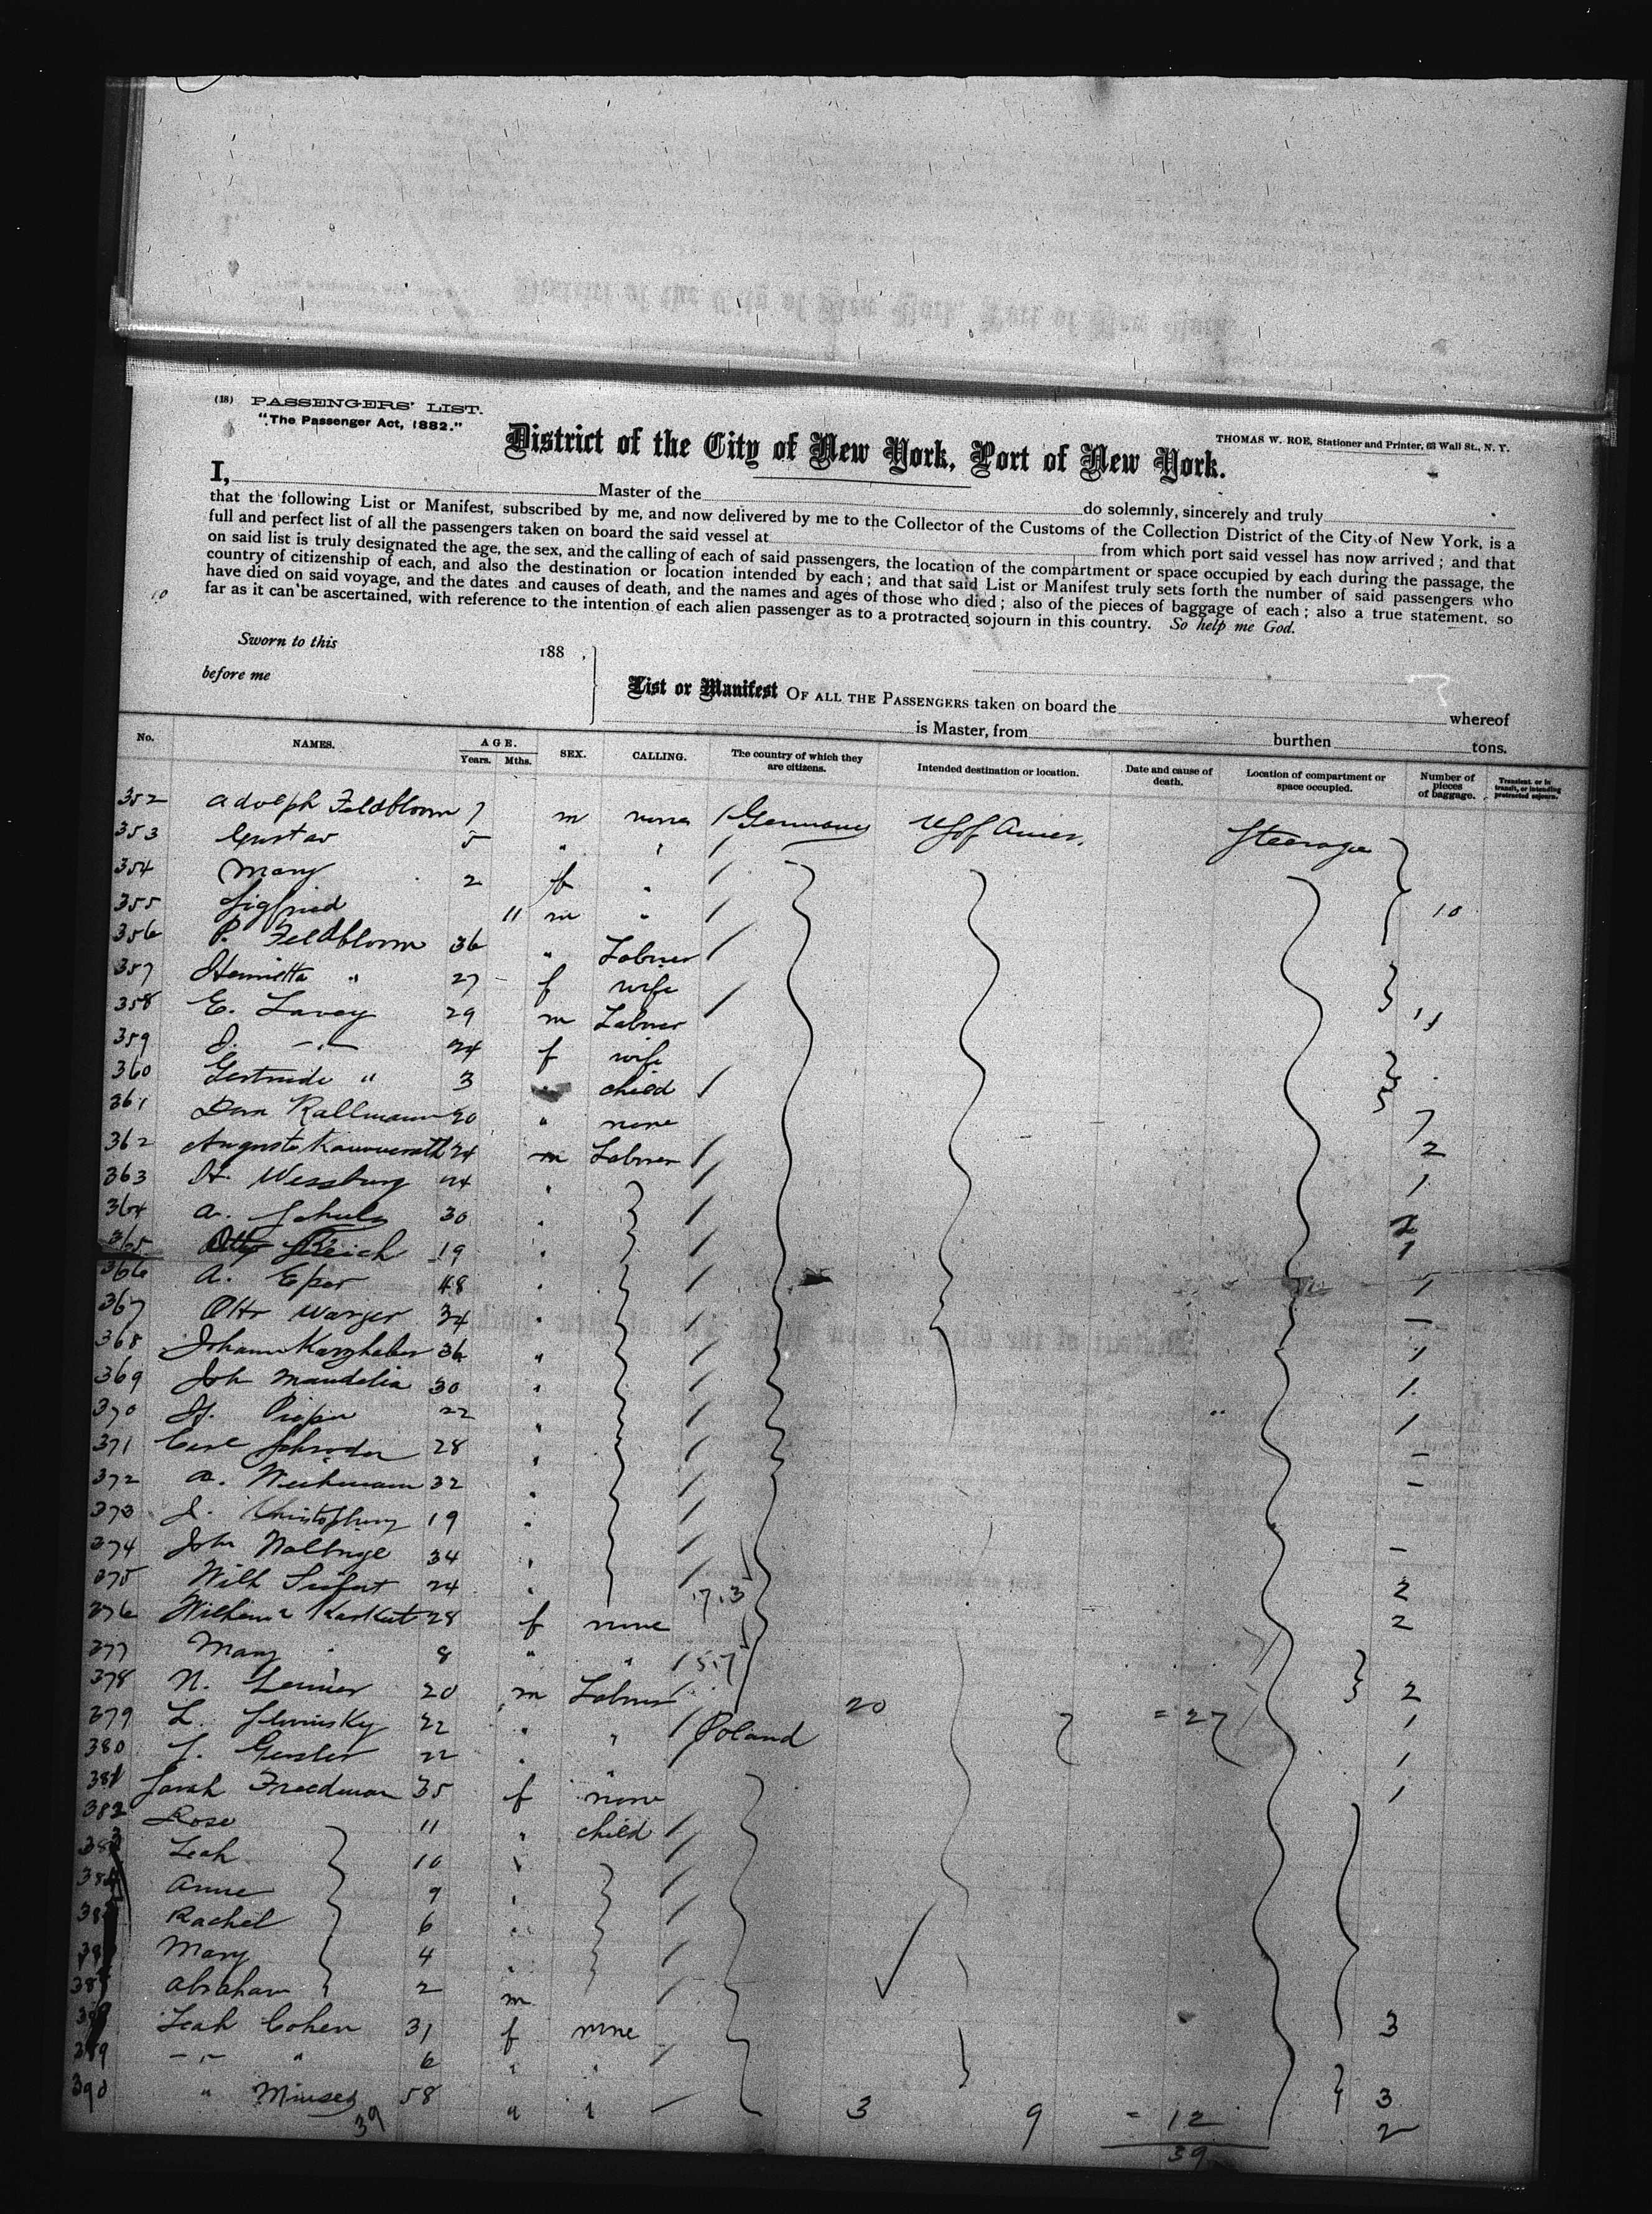 (18) PASSENGERS' LIST.
"The Passenger Act, 1882."
THOMAS W. ROE, Stationer and Printer, 63 Wall St., N. Y.
District of the City of New York, Port of New York.
I, Master of the do solemnly, sincerely and truly
that the following List or Manifest, subscribed by me, and now delivered by me to the Collector of the Customs of the Collection District of the City of New York, is a
full and perfect list of all the passengers taken on board the said vessel at from which port said vessel has now arrived; and that
on said list is truly designated the age, the sex, and the calling of each of said passengers, the location of the compartment or space occupied by each during the passage, the
country of citizenship of each, and also the destination or location intended by each; and that said List or Manifest truly sets forth the number of said passengers who
have died on said voyage, and the dates and causes of death, and the names and ages of those who died; also of the pieces of baggage of each; also a true statement, so
far as it can be ascertained, with reference to the intention of each alien passenger as to a protracted sojourn in this country. So help me God.
10
Sworn to this 188 .
before me
List or Manifest OF ALL THE PASSENGERS taken on board the whereof
is Master, from burthen tons.
No. NAMES. AGE. Years. Mths. SEX. CALLING. The country of which they are citizens. Intended destination or location. Date and cause of death. Location of compartment or space occupied. Number of pieces of baggage. Transient or in transit, or intending protracted sojourn.
352 Adolph Feldbloom 7 m none Germany U S of Amer. Steerage
353 Gustav 5 " "
354 Mary 2 f "
355 Sigfried 11 m " 10
356 P. Feldbloom 36 " Labrer
357 Henrietta " 27 f wife
358 E. Lavey 29 m Labrer 11
359 J. -"- 24 f wife
360 Gertrude " 3 child
361 Kallmann 20 " none 7
362 Auguste 24 m Labrer 2
363 H. Wessburg 24 " 1
364 A. Schulz 30 "
365 Reich 19 " 1
366 A. Eper 48 " 1
367 Otto Warger 34 " -
368 Johann 36 " 1
369 Joh Mandelia 30 " 1
370 22 " 1
371 Carl Schroder 28 " -
372 A. 32 " -
373 J. 19 "
374 John 34 " -
375 Wilh 24 " 2
376 28 f none 2
377 Mary " 8 " "
378 N. 20 m Labrer 20 2
379 L. 22 " " Poland = 27 1
380 22 " " 1
381 Sarah Freedman 35 f none 1
382 Rose 11 " child
383 Leah 10 "
384 Anne 9 "
Rachel 6 "
Mary 4 "
Abraham 2 m
Leah Cohen 31 f none 3
389 -"- " 6 " "
390 " 58 " " 3 9 = 12 3
39 39 2